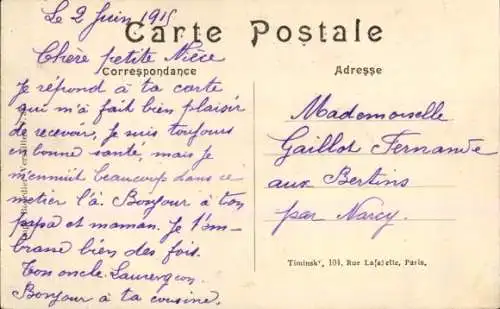 Le 2 Juin 1915
Carte Postale
Correspondance
Adresse
Chère petite Nièce
Je répond à ta carte
qui m'a fait bien plaisir
de recevoir, je suis toujours
en bonne santé, mais je
m'ennuit beaucoup dans ce
métier là. Bonjour à ton
papa et maman. Je t'em-
brasse bien des fois.
Ton oncle
Bonjour à ta cousine.
Mademoiselle
Gaillot Fernande
aux Bertins
par Narcy.
104, Rue Lafayette, Paris.